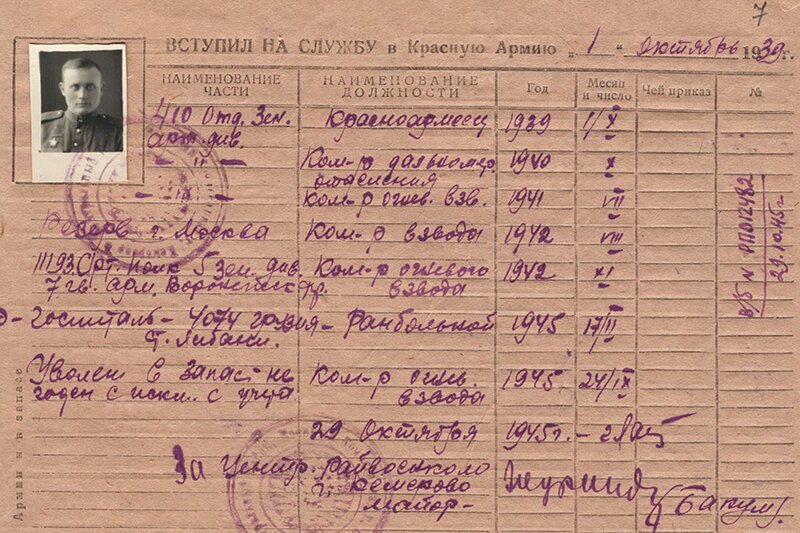 7
ВСТУПИЛ НА СЛУЖБУ в Красную Армию „1“ октябрь 1939г.
НАИМЕНОВАНИЕ ЧАСТИ НАИМЕНОВАНИЕ ДОЛЖНОСТИ Год Месяц и число Чей приказ №
410 Отд. Зен. Красноармеец 1939 1/X
Арт. див.
Ком-р дальномер. 1940 X
отделения
— " — Ком-р огнев. взв. 1941 VII
Резерв г. Москва Ком-р взвода 1942 VIII
1119 3. Арт. полк 5 Зен. див. Ком-р огневого 1942 XI
7 гв. арм Воронежск. фр. взвода
Госпиталь - 4074 - Ранбольной 1945 17/II
г.
Уволен в запас не Ком-р огнев. 1945 24/IX
годен с искл. с учета взвода
29 Октября 1945г. -
За Центр. райвоенкома
г. Кемерово
майор -
в/б N
29.10.45г
Армии и в запасе